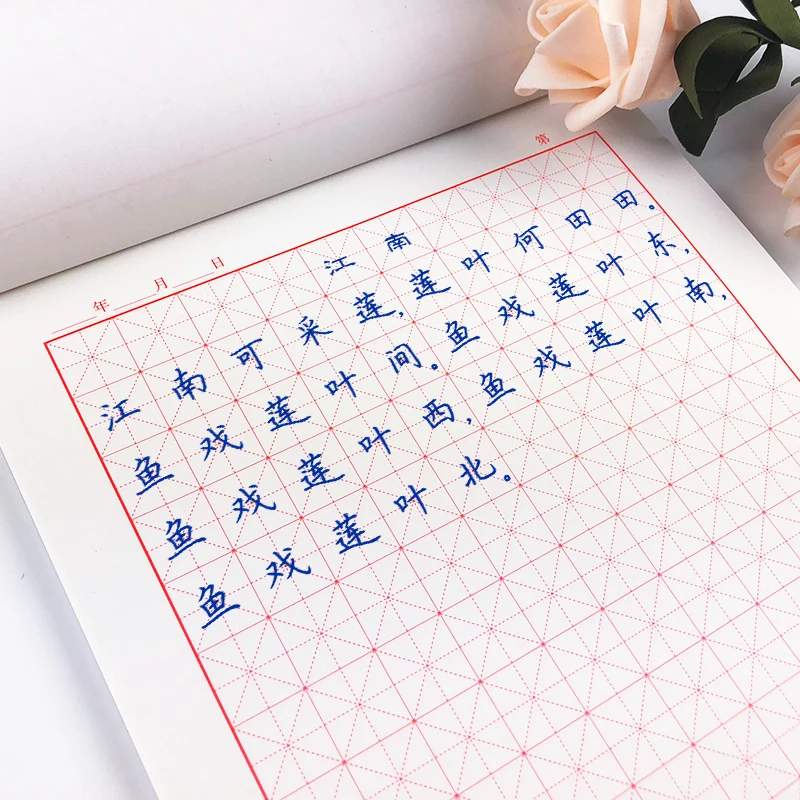 第
年 月 日
江南
江南可采莲,莲叶何田田。
鱼戏莲叶间。鱼戏莲叶东,
鱼戏莲叶西,鱼戏莲叶南,
鱼戏莲叶北。